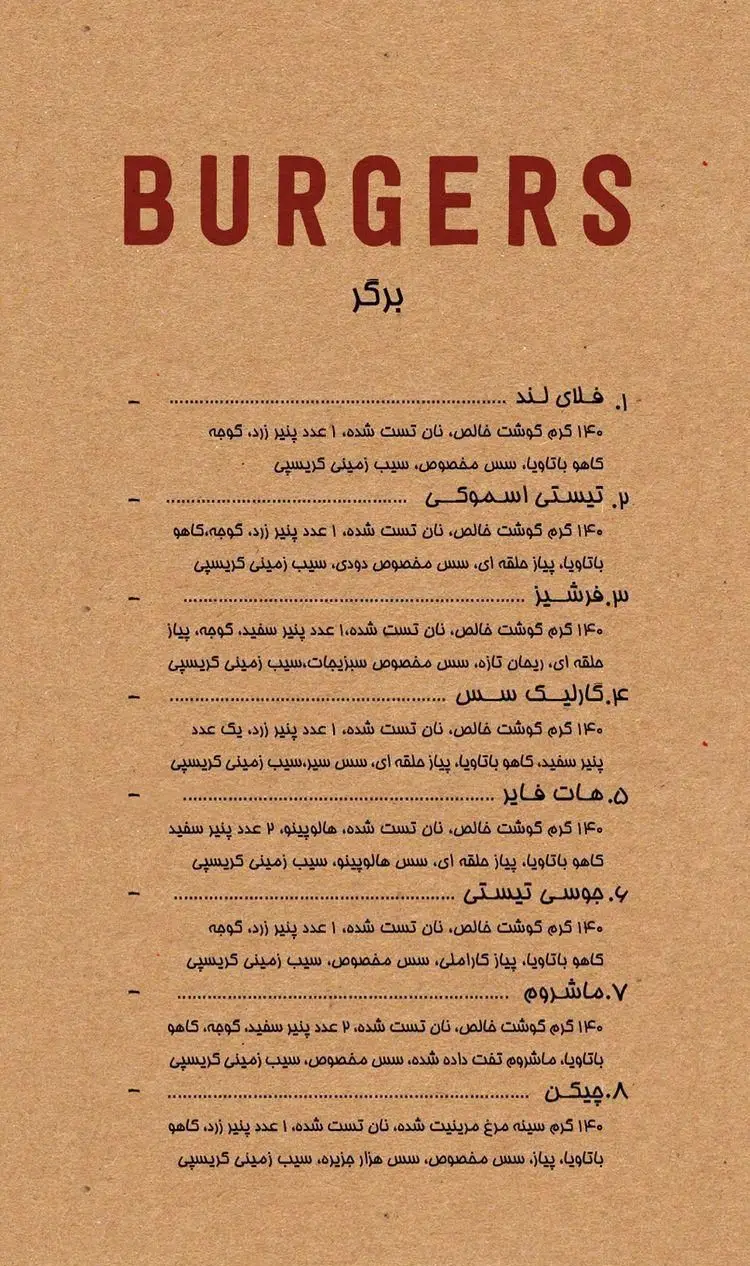 BURGERS
برگر
۱. فلای لند ........................ –
۱۴۰ گرم گوشت خالص، نان تست شده، ۱ عدد پنیر زرد، گوجه
کاهو باتاویا، سس مخصوص، سیب زمینی کریسپی
۲. تیستی اسموکی ........................ –
۱۴۰ گرم گوشت خالص، نان تست شده، ۱ عدد پنیر زرد، گوجه،کاهو
باتاویا، پیاز حلقه ای، سس مخصوص دودی، سیب زمینی کریسپی
۳.فرشیز ........................ –
۱۴۰ گرم گوشت خالص، نان تست شده،۱ عدد پنیر سفید، گوجه، پیاز
حلقه ای، ریحان تازه، سس مخصوص سبزیجات،سیب زمینی کریسپی
۴.گارلیک سس ........................ –
۱۴۰ گرم گوشت خالص، نان تست شده، ۱ عدد پنیر زرد، یک عدد
پنیر سفید، کاهو باتاویا، پیاز حلقه ای، سس سیر،سیب زمینی کریسپی
۵. هات فایر ........................ –
۱۴۰ گرم گوشت خالص، نان تست شده، هالوپینو، ۲ عدد پنیر سفید
کاهو باتاویا، پیاز حلقه ای، سس هالوپینو، سیب زمینی کریسپی
۶. جوسی تیستی ........................ –
۱۴۰ گرم گوشت خالص، نان تست شده، ۱ عدد پنیر زرد، گوجه
کاهو باتاویا، پیاز کاراملی، سس مخصوص، سیب زمینی کریسپی
۷.ماشروم ........................ –
۱۴۰ گرم گوشت خالص، نان تست شده، ۲ عدد پنیر سفید، گوجه، کاهو
باتاویا، ماشروم تفت داده شده، سس مخصوص، سیب زمینی کریسپی
۸.چیکن ........................ –
۱۴۰ گرم سینه مرغ مرینیت شده، نان تست شده، ۱ عدد پنیر زرد، کاهو
باتاویا، پیاز، سس مخصوص، سس هزار جزیره، سیب زمینی کریسپی